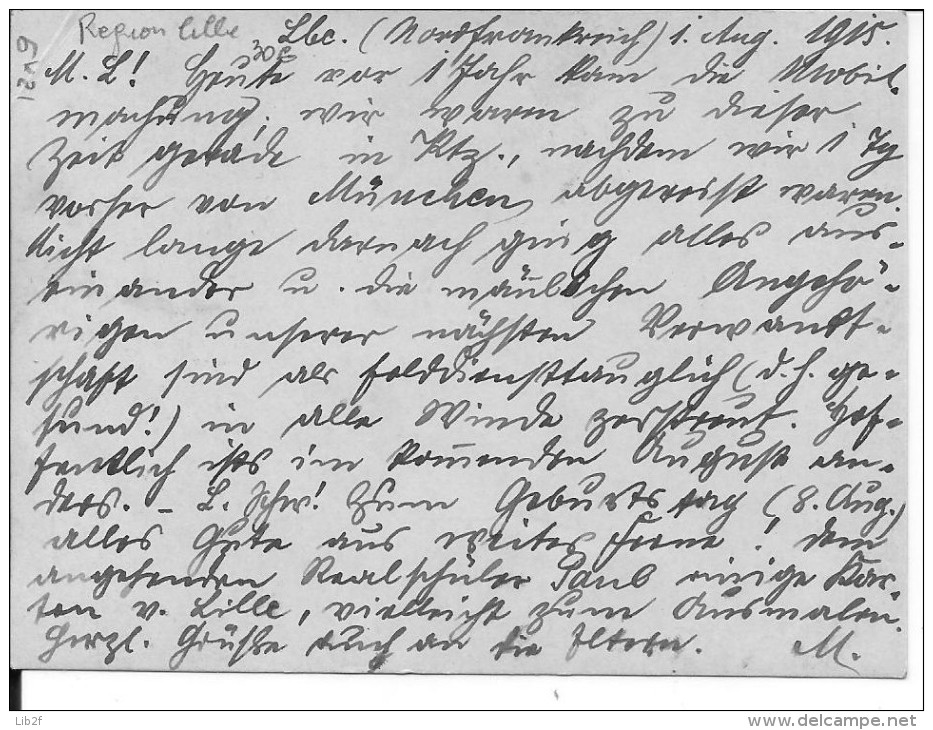 Region Lille
Lbc. (Nordfrankreich) 1. Aug. 1915.
M. L! Heute vor 1 Jahr kam die Mobil-
machung; wir waren zu dieser
Zeit gerade in Ktz., nachdem wir 1 Tg
vorher von München abgereist waren.
Nicht lange darnach ging alles aus-
einander u. die männlichen Angehö-
rigen unserer nächsten Verwandt-
schaft sind als felddiensttauglich (d.h. ge-
sund!) in alle Winde zerstreut. Hof-
fentlich ists im kommenden August an-
ders. - L. Schw! Zum Geburtstag (8. Aug.)
alles Gute aus weiter Ferne! Dem
angehenden Realschüler einige Kar-
ten v. Lille, vielleicht zum Ausmalen.
Herzl. Grüße auch an die Eltern. M.
Lib2f
www.delcampe.net